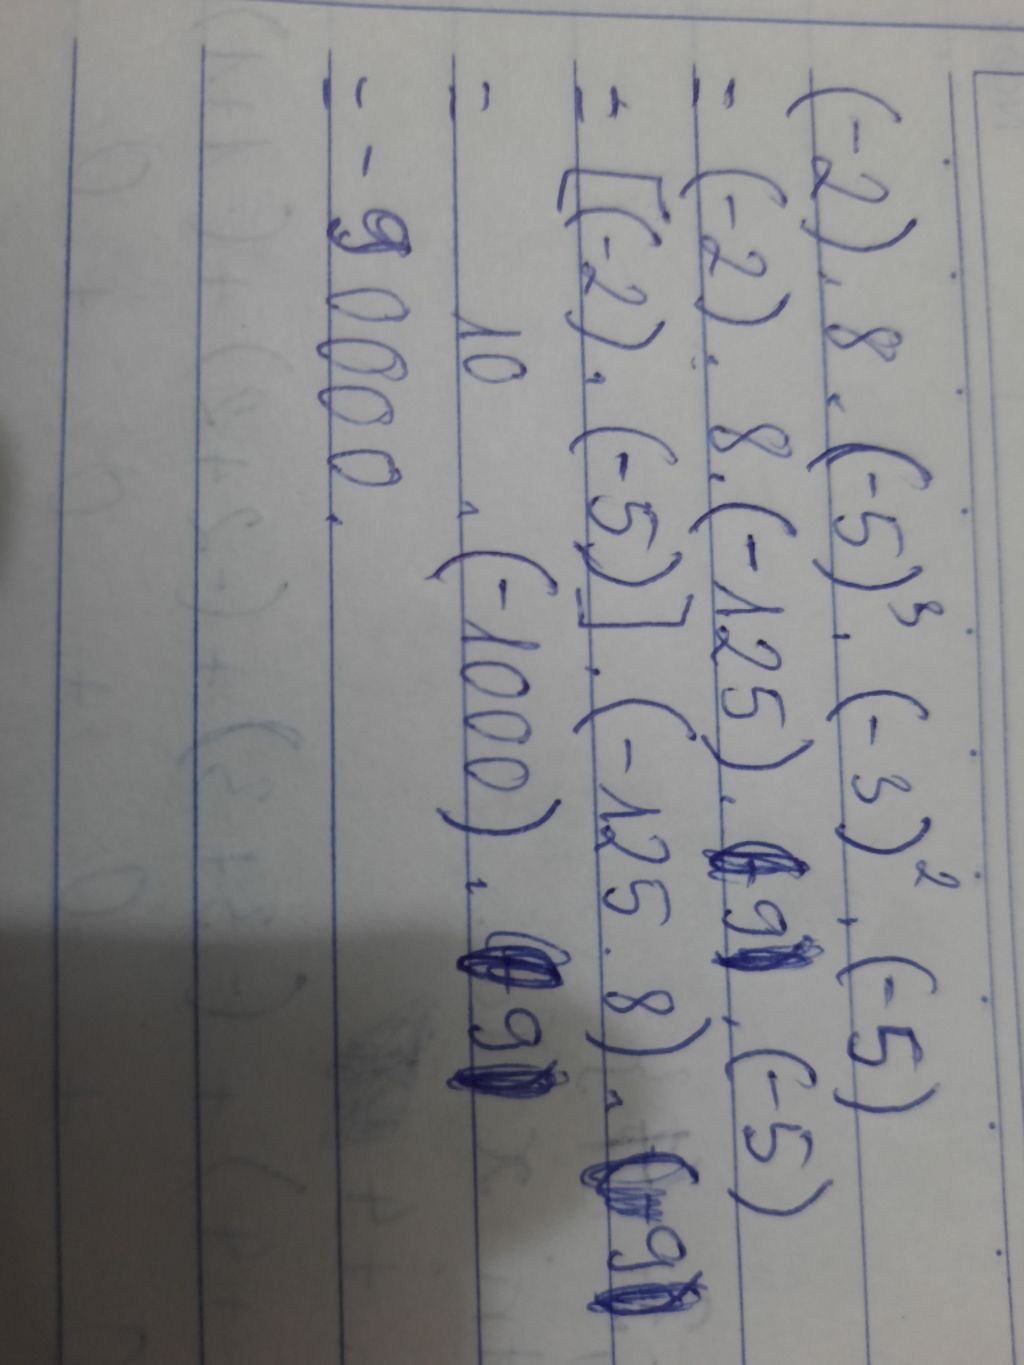 (-2).8.(-5)³.(-3)².(-5)
= (-2).8.(-125).9.(-5)
= [(-2).(-5)].(-125.8).9
= 10.(-1000).9
= -90000.